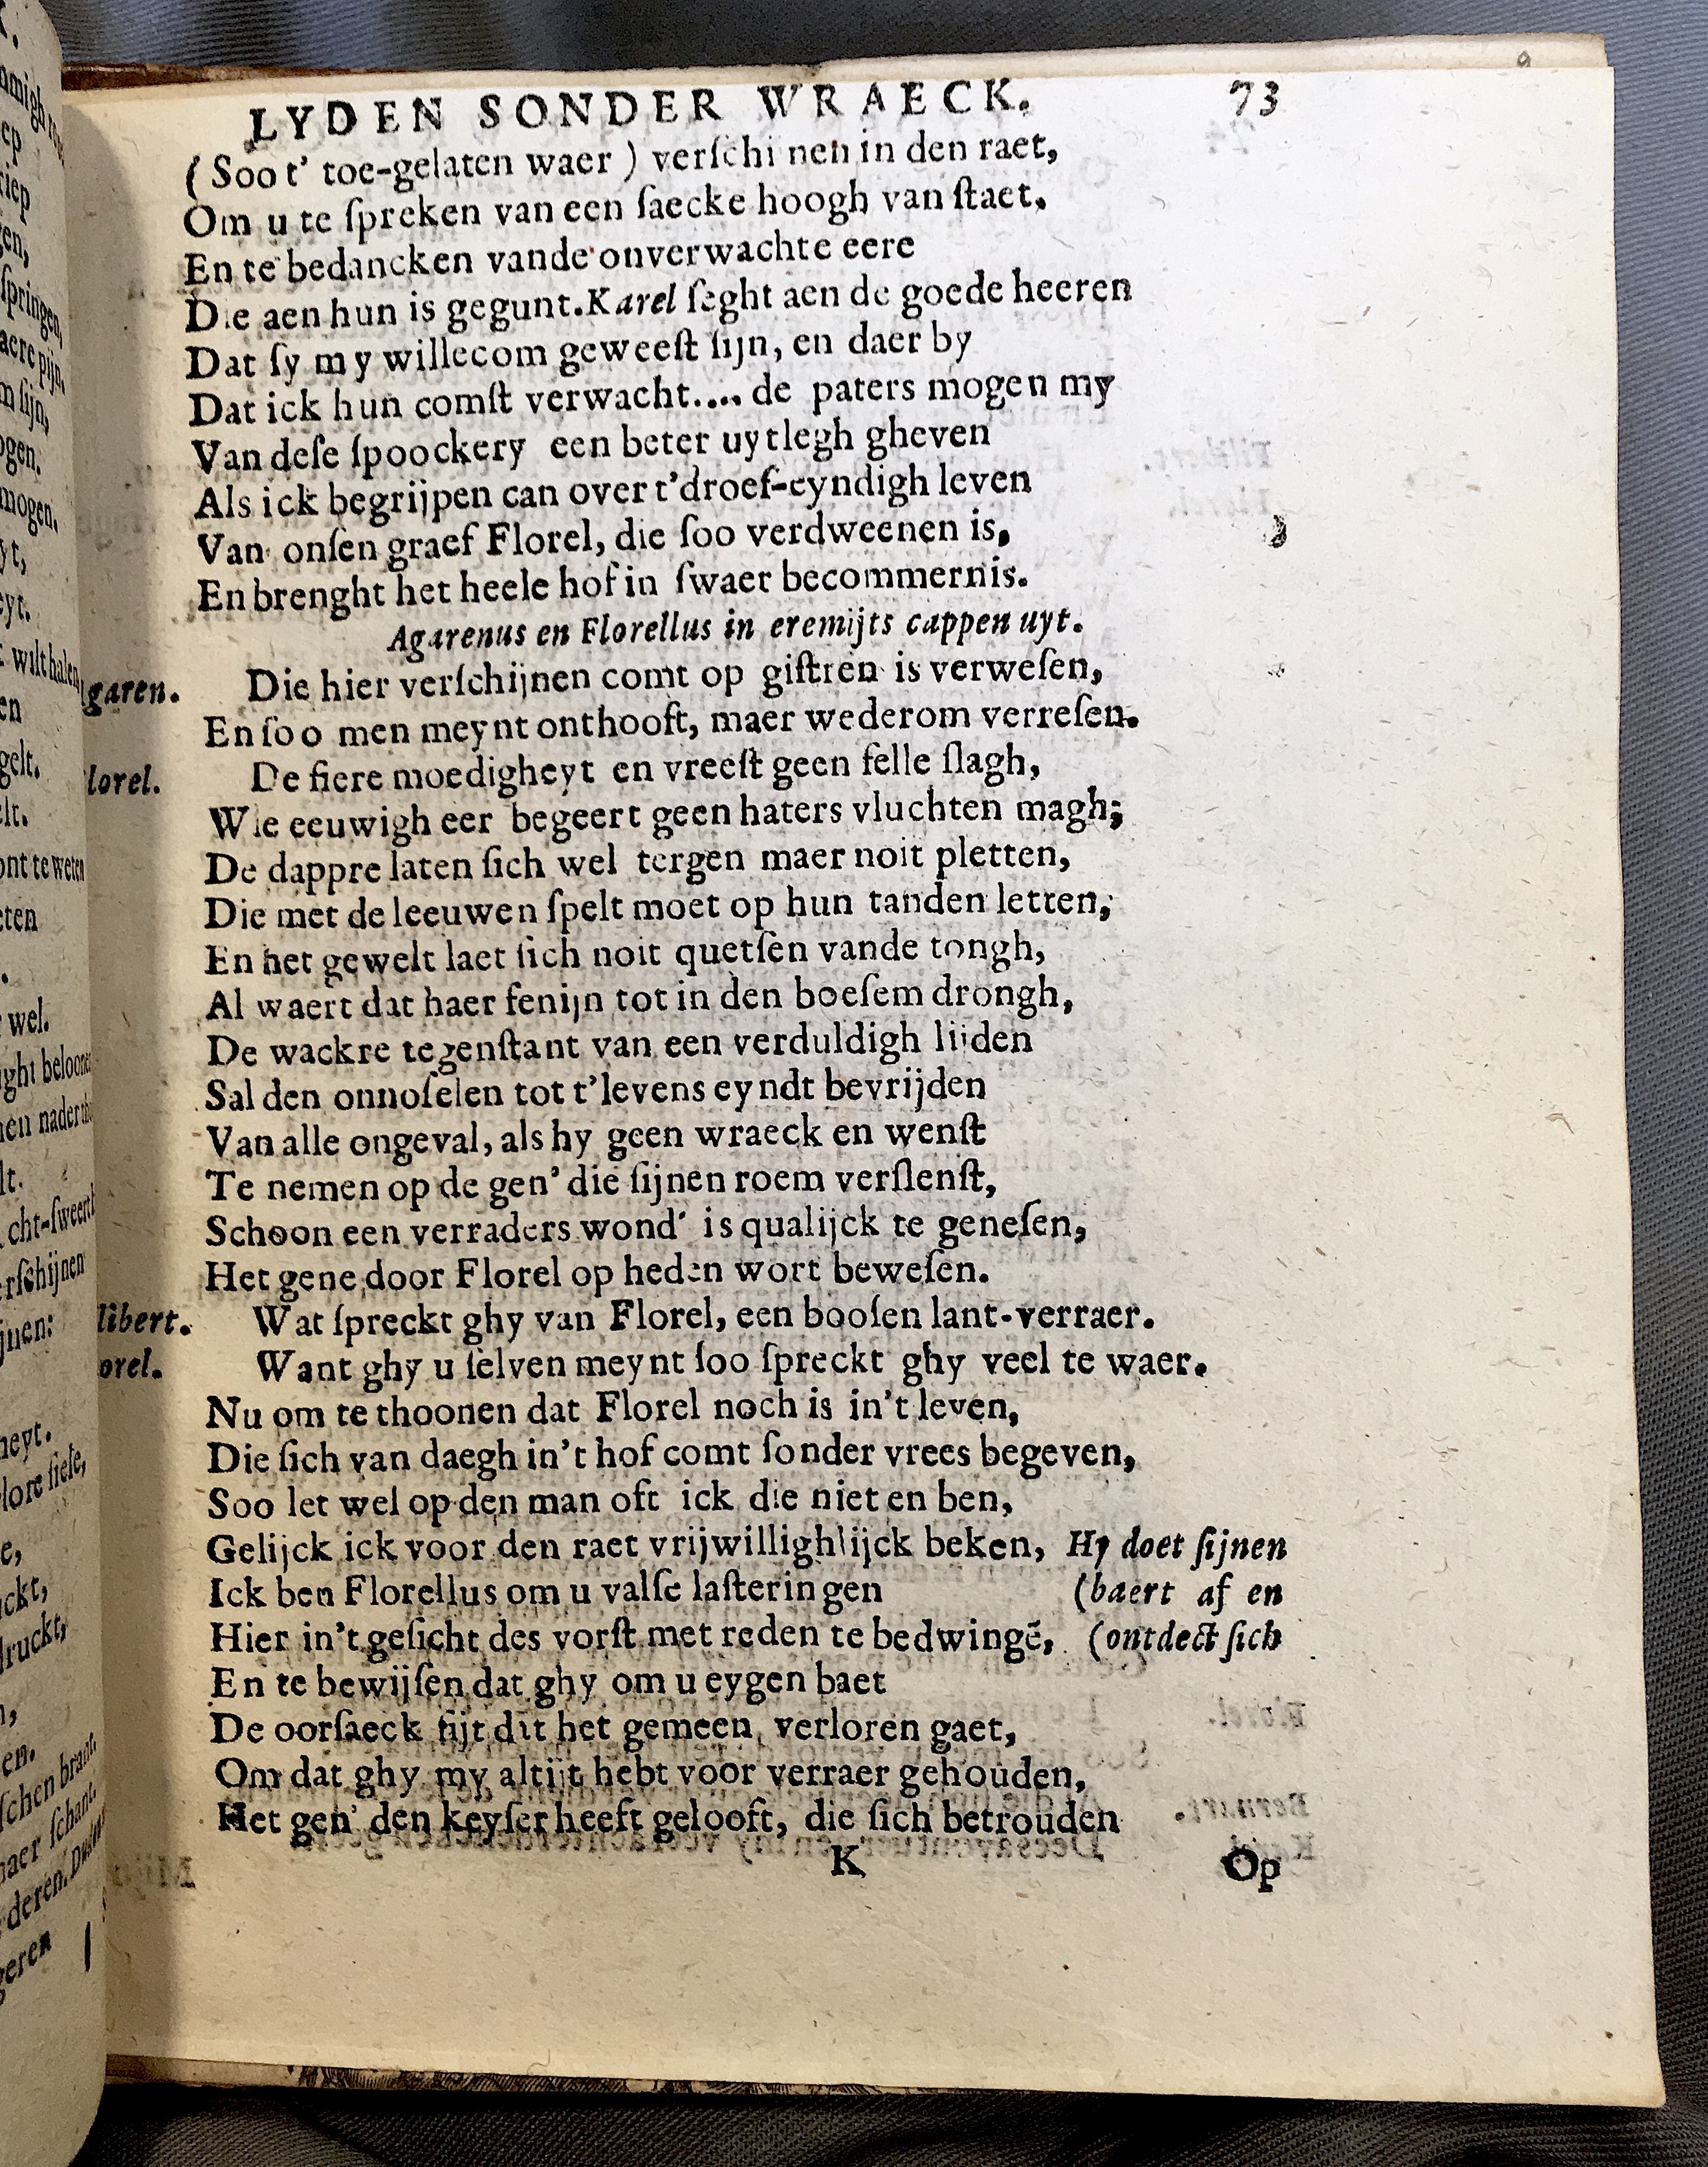 LYDEN SONDER WRAECK. 73
(Soo t' toe-gelaten waer) verſchi nen in den raet,
Om u te ſpreken van een ſaecke hoogh van ſtaet.
En te bedancken vande onverwachte eere
Die aen hun is gegunt. Karel ſeght aen de goede heeren
Dat ſy my willecom geweeſt ſijn, en daer by
Dat ick hun comſt verwacht.... de paters mogen my
Van deſe ſpoockery een beter uytlegh gheven
Als ick begrijpen can over t'droef-eyndigh leven
Van onſen graef Florel, die ſoo verdweenen is,
En brenght het heele hof in ſwaer becommernis.
Agarenus en Florellus in eremijts cappen uyt.
garen. Die hier verſchijnen comt op giſtren is verweſen,
En ſoo men meynt onthooft, maer wederom verreſen.
lorel. De fiere moedigheyt en vreeſt geen felle ſlagh,
Wie eeuwigh eer begeert geen haters vluchten magh;
De dappre laten ſich wel tergen maer noit pletten,
Die met de leeuwen ſpelt moet op hun tanden letten,
En het gewelt laet ſich noit quetſen vande tongh,
Al waert dat haer fenijn tot in den boeſem drongh,
De wackre tegenſtant van een verduldigh lijden
Sal den onnoſelen tot t'levens eyndt bevrijden
Van alle ongeval, als hy geen wraeck en wenſt
Te nemen op de gen' die ſijnen roem verſlenſt,
Schoon een verraders wond' is qualijck te geneſen,
Het gene door Florel op heden wort beweſen.
libert. Wat ſpreckt ghy van Florel, een booſen lant-verraer.
orel. Want ghy u ſelven meynt ſoo ſpreckt ghy veel te waer.
Nu om te thoonen dat Florel noch is in't leven,
Die ſich van daegh in't hof comt ſonder vrees begeven,
Soo let wel op den man oft ick die niet en ben,
Gelijck ick voor den raet vrijwillighlijck beken, Hy doet ſijnen
Ick ben Florellus om u valſe laſteringen (baert af en
Hier in't geſicht des vorſt met reden te bedwingē, (ontdect ſich
En te bewijſen dat ghy om u eygen baet
De oorſaeck ſijt dit het gemeen verloren gaet,
Om dat ghy my altijt hebt voor verraer gehouden,
Het gen' den keyſer heeft gelooft, die ſich betrouden
K Op